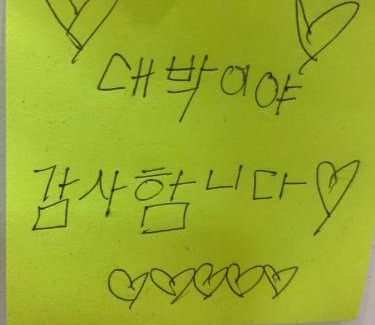 대박이야
감사합니다